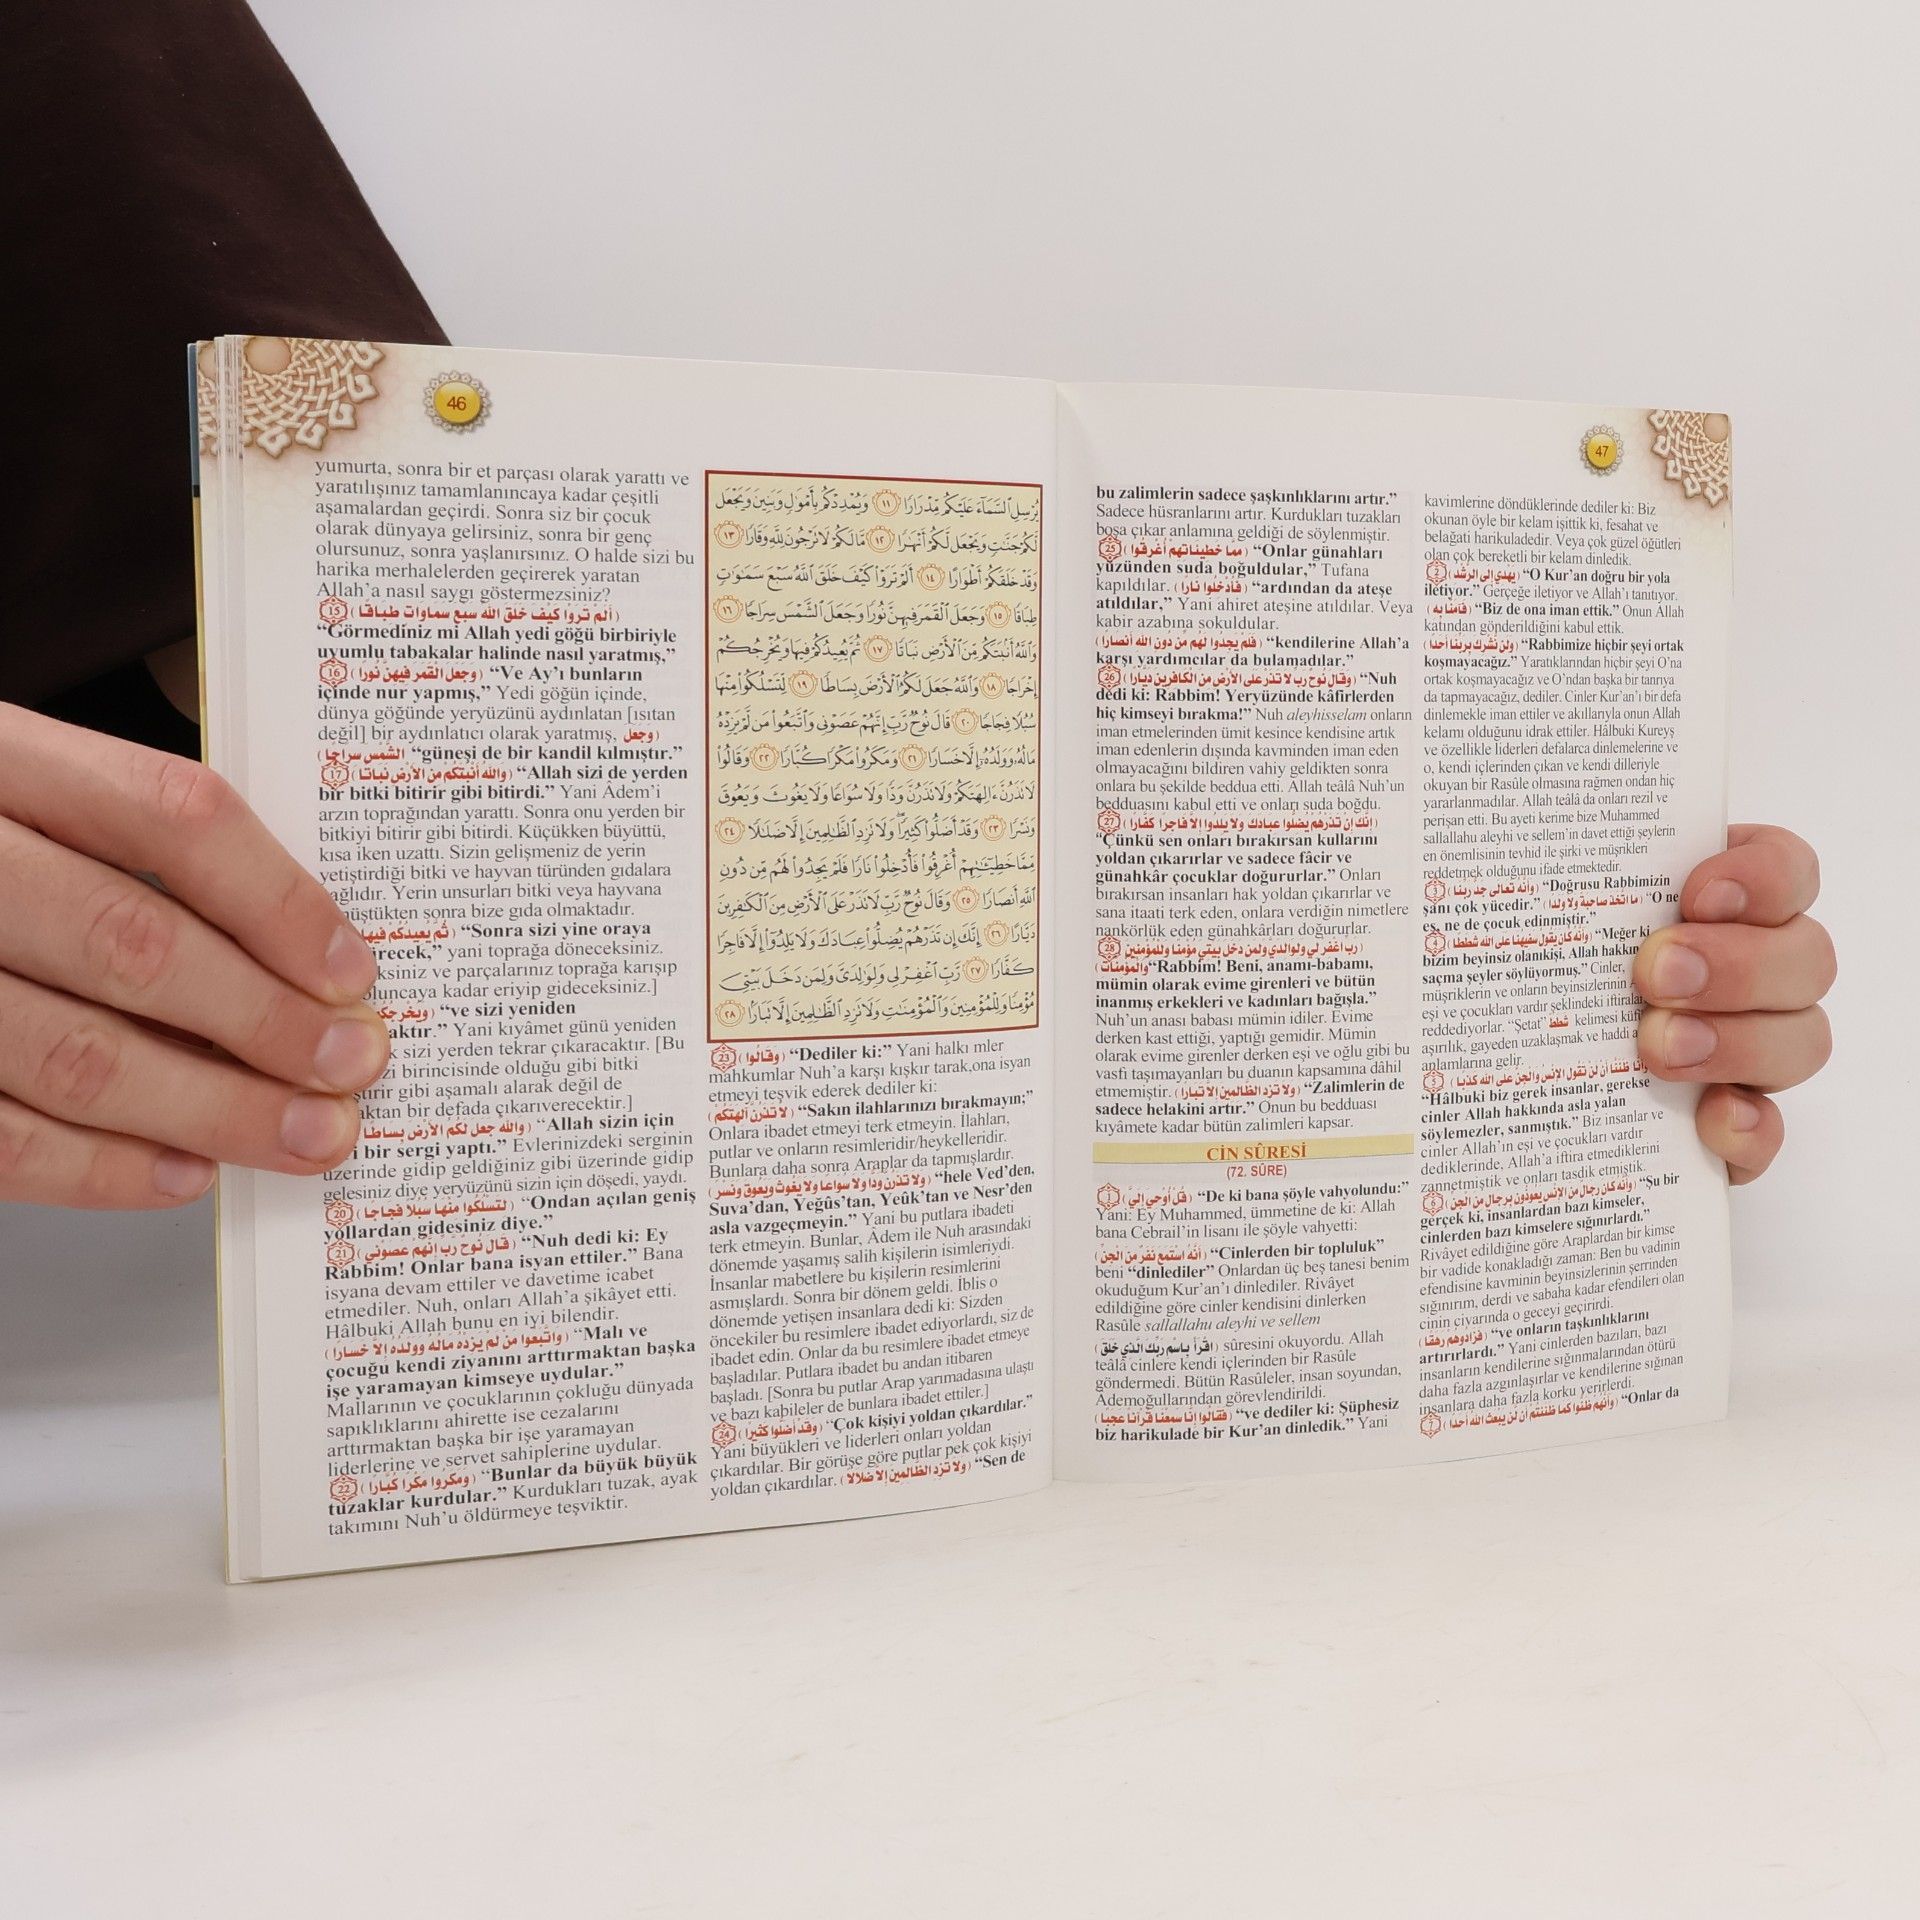 46
yumurta, sonra bir et parçası olarak yarattı ve
yaratılışınız tamamlanıncaya kadar çeşitli
aşamalardan geçirdi. Sonra siz bir çocuk
olarak dünyaya gelirsiniz, sonra bir genç
olursunuz, sonra yaşlanırsınız. O halde sizi bu
harika merhalelerden geçirerek yaratan
Allah’a nasıl saygı göstermezsiniz?
15 ( أَلَمْ تَرَوْا كَيْفَ خَلَقَ اللَّه سَبع سماوات طباقًا )
“Görmediniz mi Allah yedi göğü birbiriyle
uyumlu tabakalar halinde nasıl yaratmış,”
16 ( وَجَعَلَ الْقَمَرَ فِيهِنَّ نُورًا ) “Ve Ay’ı bunların
içinde nur yapmış,” Yedi göğün içinde,
dünya göğünde yeryüzünü aydınlatan [ısıtan
değil] bir aydınlatıcı olarak yaratmış, ( وَجَعَلَ
الشَّمْسَ سراجًا ) “güneşi de bir kandil kılmıştır.”
17 ( واللَّهُ أَنْبَتَكُم من الأَرْضِ نَباتًا ) “Allah sizi de yerden
bir bitki bitirir gibi bitirdi.” Yani Âdem’i
arzın toprağından yarattı. Sonra onu yerden bir
bitkiyi bitirir gibi bitirdi. Küçükken büyüttü,
kısa iken uzattı. Sizin gelişmeniz de yerin
yetiştirdiği bitki ve hayvan türünden gıdalara
bağlıdır. Yerin unsurları bitki veya hayvana
sonra bize gıda olmaktadır.
( ثُمَّ يُعِيدُكُمْ فيها “Sonra sizi yine oraya
yani toprağa döneceksiniz.
ve parçalarınız toprağa karışıp
kadar eriyip gideceksiniz.]
“ve sizi yeniden
Yani kıyâmet günü yeniden
sizi yerden tekrar çıkaracaktır. [Bu
birincisinde olduğu gibi bitki
gibi aşamalı alarak değil de
bir defada çıkarıverecektir.]
( واللَّه جعل لكُم الأَرْض بساطًا ) “Allah sizin için
bir sergi yaptı.” Evlerinizdeki serginin
üzerinde gidip geldiğiniz gibi üzerinde gidip
gelesiniz diye yeryüzünü sizin için döşedi, yaydı.
20 ( لتَسْلُكُوا منْها سُبُلًا فجاجًا ) “Ondan açılan geniş
yollardan gidesiniz diye.”
21 ( قَالَ نُوحٌ رَّبِّ إِنَّهُمْ عَصَوْنِي ) “Nuh dedi ki: Ey
Rabbim! Onlar bana isyan ettiler.” Bana
isyana devam ettiler ve davetime icabet
etmediler. Nuh, onları Allah’a şikâyet etti.
Hâlbuki Allah bunu en iyi bilendir.
( وَاتَّبَعوا مَنْ لَمْ يَزِدْه مَالُه وَوَلَدُه إِلاَّ خَسَارًا ) “Malı ve
çocuğu kendi ziyanını arttırmaktan başka
işe yaramayan kimseye uydular.”
Mallarının ve çocuklarının çokluğu dünyada
sapıklıklarını ahirette ise cezalarını
arttırmaktan başka bir işe yaramayan
liderlerine ve servet sahiplerine uydular.
22 ( وَمَكَروا مَكْرًا كُبَّارًا ) “Bunlar da büyük büyük
tuzaklar kurdular.” Kurdukları tuzak, ayak
takımını Nuh’u öldürmeye teşviktir.
يُرْسِلِ ٱلسَّمَآءَ عَلَيْكُم مِّدْرَارًا ١١ وَيُمْدِدْكُم بِأَمْوَٰلٍ وَبَنِينَ وَيَجْعَل
لَّكُمْ جَنَّٰتٍ وَيَجْعَل لَّكُمْ أَنْهَٰرًا ١٢ مَّا لَكُمْ لَا تَرْجُونَ لِلَّهِ وَقَارًا ١٣
وَقَدْ خَلَقَكُمْ أَطْوَارًا ١٤ أَلَمْ تَرَوْا۟ كَيْفَ خَلَقَ ٱللَّهُ سَبْعَ سَمَٰوَٰتٍ
طِبَاقًا ١٥ وَجَعَلَ ٱلْقَمَرَ فِيهِنَّ نُورًا وَجَعَلَ ٱلشَّمْسَ سِرَاجًا ١٦
وَٱللَّهُ أَنۢبَتَكُم مِّنَ ٱلْأَرْضِ نَبَاتًا ١٧ ثُمَّ يُعِيدُكُمْ فِيهَا وَيُخْرِجُكُمْ
إِخْرَاجًا ١٨ وَٱللَّهُ جَعَلَ لَكُمُ ٱلْأَرْضَ بِسَاطًا ١٩ لِّتَسْلُكُوا۟ مِنْهَا
سُبُلًا فِجَاجًا ٢٠ قَالَ نُوحٌ رَّبِّ إِنَّهُمْ عَصَوْنِى وَٱتَّبَعُوا۟ مَن لَّمْ يَزِدْهُ
مَالُهُۥ وَوَلَدُهُۥٓ إِلَّا خَسَارًا ٢١ وَمَكَرُوا۟ مَكْرًا كُبَّارًا ٢٢ وَقَالُوا۟
لَا تَذَرُنَّ ءَالِهَتَكُمْ وَلَا تَذَرُنَّ وَدًّا وَلَا سُوَاعًا وَلَا يَغُوثَ وَيَعُوقَ
وَنَسْرًا ٢٣ وَقَدْ أَضَلُّوا۟ كَثِيرًا وَلَا تَزِدِ ٱلظَّٰلِمِينَ إِلَّا ضَلَٰلًا ٢٤
مِّمَّا خَطِيٓـَٰٔتِهِمْ أُغْرِقُوا۟ فَأُدْخِلُوا۟ نَارًا فَلَمْ يَجِدُوا۟ لَهُم مِّن دُونِ
ٱللَّهِ أَنصَارًا ٢٥ وَقَالَ نُوحٌ رَّبِّ لَا تَذَرْ عَلَى ٱلْأَرْضِ مِنَ ٱلْكَٰفِرِينَ
دَيَّارًا ٢٦ إِنَّكَ إِن تَذَرْهُمْ يُضِلُّوا۟ عِبَادَكَ وَلَا يَلِدُوٓا۟ إِلَّا فَاجِرًا
كَفَّارًا ٢٧ رَّبِّ ٱغْفِرْ لِى وَلِوَٰلِدَىَّ وَلِمَن دَخَلَ بَيْتِىَ
مُؤْمِنًا وَلِلْمُؤْمِنِينَ وَٱلْمُؤْمِنَٰتِ وَلَا تَزِدِ ٱلظَّٰلِمِينَ إِلَّا تَبَارًۢا ٢٨
23 ( وَقَالُوا ) “Dediler ki:” Yani halkı mler
mahkumlar Nuh’a karşı kışkır tarak,ona isyan
etmeyi teşvik ederek dediler ki:
( لاَ تَذَرُنَّ آلِهَتَكُمْ ) “Sakın ilahlarınızı bırakmayın;”
Onlara ibadet etmeyi terk etmeyin. İlahları,
putlar ve onların resimleridir/heykelleridir.
Bunlara daha sonra Araplar da tapmışlardır.
( ولا تَذَرُنَّ وَدًّا ولا سواعا ولا يغوث ويعوق ونسْرًا ) “hele Ved’den,
Suva’dan, Yeğûs’tan, Yeûk’tan ve Nesr’den
asla vazgeçmeyin.” Yani bu putlara ibadeti
terk etmeyin. Bunlar, Âdem ile Nuh arasındaki
dönemde yaşamış salih kişilerin isimleriydi.
İnsanlar mabetlere bu kişilerin resimlerini
asmışlardı. Sonra bir dönem geldi. İblis o
dönemde yetişen insanlara dedi ki: Sizden
öncekiler bu resimlere ibadet ediyorlardı, siz de
ibadet edin. Onlar da bu resimlere ibadet etmeye
başladılar. Putlara ibadet bu andan itibaren
başladı. [Sonra bu putlar Arap yarımadasına ulaştı
ve bazı kabileler de bunlara ibadet ettiler.]
24 ( وقد أَضَلُّوا كَثيرًا ) “Çok kişiyi yoldan çıkardılar.”
Yani büyükleri ve liderleri onları yoldan
çıkardılar. Bir görüşe göre putlar pek çok kişiyi
yoldan çıkardılar. ( ولا تَزِد الظَّالِمِينَ إلا ضلالا ) “Sen de
47
bu zalimlerin sadece şaşkınlıklarını artır.”
Sadece hüsranlarını artır. Kurdukları tuzakları
boşa çıkar anlamına geldiği de söylenmiştir.
25 ( ممَّا خطيئاتهِمْ أُغْرقُوا ) “Onlar günahları
yüzünden suda boğuldular,” Tufana
kapıldılar. ( فَأُدْخلُوا نَارًا ) “ardından da ateşe
atıldılar,” Yani ahiret ateşine atıldılar. Veya
kabir azabına sokuldular.
( فلم يَجِدُوا لهُم مِّن دُونِ اللَّه أَنصارًا ) “kendilerine Allah’a
karşı yardımcılar da bulamadılar.”
26 ( وَقَالَ نُوحٌ رَّبِّ لا تَذَرْ على الأَرْض من الكافرين ديَّارًا ) “Nuh
dedi ki: Rabbim! Yeryüzünde kâfirlerden
hiç kimseyi bırakma!” Nuh aleyhisselam onların
iman etmelerinden ümit kesince kendisine artık
iman edenlerin dışında kavminden iman eden
olmayacağını bildiren vahiy geldikten sonra
onlara bu şekilde beddua etti. Allah teâlâ Nuh’un
bedduasını kabul etti ve onları suda boğdu.
27 ( إنَّكَ إِن تَذَرْهُمْ يُضلوا عبادك ولا يلدُوا إلا فاجرا كَفَّارًا )
“Çünkü sen onları bırakırsan kullarını
yoldan çıkarırlar ve sadece fâcir ve
günahkâr çocuklar doğururlar.” Onları
bırakırsan insanları hak yoldan çıkarırlar ve
sana itaati terk eden, onlara verdiğin nimetlere
nankörlük eden günahkârları doğururlar.
28 ( رب اغفر لي ولوالديَّ ولمن دخل بيتي مؤمنا وللْمُؤمنين
والْمؤمنات ) “Rabbim! Beni, anamı-babamı,
mümin olarak evime girenleri ve bütün
inanmış erkekleri ve kadınları bağışla.”
Nuh’un anası babası mümin idiler. Evime
derken kast ettiği, yaptığı gemidir. Mümin
olarak evime girenler derken eşi ve oğlu gibi bu
vasfı taşımayanları bu duanın kapsamına dâhil
etmemiştir. ( ولا تَزِد الظَّالمين إلا تبارًا ) “Zalimlerin de
sadece helakini artır.” Onun bu bedduası
kıyâmete kadar bütün zalimleri kapsar.
CİN SÛRESİ
(72. SÛRE)
1 ( قُلْ أُوحِيَ إِلَيَّ ) “De ki bana şöyle vahyolundu:”
Yani: Ey Muhammed, ümmetine de ki: Allah
bana Cebrail’in lisanı ile şöyle vahyetti:
( أَنَّهُ اسْتَمَعَ نَفَرٌ مِنَ الْجِنِّ ) “Cinlerden bir topluluk”
beni “dinlediler” Onlardan üç beş tanesi benim
okuduğum Kur’an’ı dinlediler. Rivâyet
edildiğine göre cinler kendisini dinlerken
Rasûle sallallahu aleyhi ve sellem
( اقْرَأْ بِاسْمِ رَبِّكَ الَّذِي خَلَقَ ) sûresini okuyordu. Allah
teâlâ cinlere kendi içlerinden bir Rasûle
göndermedi. Bütün Rasûleler, insan soyundan,
Ademoğullarından görevlendirildi.
( فَقَالُوا إِنَّا سَمِعْنَا قُرْآنًا عَجَبًا ) “ve dediler ki: Şüphesiz
biz harikulade bir Kur’an dinledik.” Yani
kavimlerine döndüklerinde dediler ki: Biz
okunan öyle bir kelam işittik ki, fesahat ve
belağati harikuladedir. Veya çok güzel öğütleri
olan çok bereketli bir kelam dinledik.
2 ( يَهْدِي إِلَى الرُّشْدِ ) “O Kur’an doğru bir yola
iletiyor.” Gerçeğe iletiyor ve Allah’ı tanıtıyor.
( فَآمَنَّا بِهِ ) “Biz de ona iman ettik.” Onun Allah
katından gönderildiğini kabul ettik.
( ولن نُّشْرِكَ بِرَبِّنَا أحدًا ) “Rabbimize hiçbir şeyi ortak
koşmayacağız.” Yaratıklarından hiçbir şeyi O’na
ortak koşmayacağız ve O’ndan başka bir tanrıya
da tapmayacağız, dediler. Cinler Kur’an’ı bir defa
dinlemekle iman ettiler ve akıllarıyla onun Allah
kelamı olduğunu idrak ettiler. Hâlbuki Kureyş
ve özellikle liderleri defalarca dinlemelerine ve
o, kendi içlerinden çıkan ve kendi dilleriyle
okuyan bir Rasûle olmasına rağmen ondan hiç
yararlanmadılar. Allah teâlâ da onları rezil ve
perişan etti. Bu ayeti kerime bize Muhammed
sallallahu aleyhi ve sellem’in davet ettiği şeylerin
en önemlisinin tevhid ile şirki ve müşrikleri
reddetmek olduğunu ifade etmektedir.
3 ( وأَنَّه تعالى جَدُّ رَبِّنَا ) “Doğrusu Rabbimizin
şanı çok yücedir.” ( ما اتَّخذ صاحبة ولا ولدا ) “O ne
eş, ne de çocuk edinmiştir.”
4 ( وأَنَّه كان يقول سفيهنا على الله شططا ) “Meğer ki
bizim beyinsiz olanıkişi, Allah hakkın
saçma şeyler söylüyormuş.” Cinler,
müşriklerin ve onların beyinsizlerinin
eşi ve çocukları vardır şeklindeki iftiralar
reddediyorlar. “Şetat” شطط kelimesi
aşırılık, gayeden uzaklaşmak ve haddi
anlamlarına gelir.
5 وأَنَّا ظَنَنَّا أَنْ لَنْ تَقُولَ الإِنْس والْجِنُّ على اللَّه كذبًا )
“Hâlbuki biz gerek insanlar, gerekse
cinler Allah hakkında asla yalan
söylemezler, sanmıştık.” Biz insanlar ve
cinler Allah’ın eşi ve çocukları vardır
dediklerinde, Allah’a iftira etmediklerini
zannetmiştik ve onları tasdik etmiştik.
6 ( وأَنَّه كان رجال من الإنْس يعوذون برجال من الجن ) “Şu bir
gerçek ki, insanlardan bazı kimseler,
cinlerden bazı kimselere sığınırlardı.”
Rivâyet edildiğine göre Araplardan bir kimse
bir vadide konakladığı zaman: Ben bu vadinin
efendisine kavminin beyinsizlerinin şerrinden
sığınırım, derdi ve sabaha kadar efendileri olan
cinin civarında o geceyi geçirirdi.
( فَزَادُوهُمْ رَهَقًا ) “ve onların taşkınlıklarını
artırırlardı.” Yani cinlerden bazıları, bazı
insanların kendilerine sığınmalarından ötürü
daha fazla azgınlaşırlar ve kendilerine sığınan
insanlara daha fazla korku yerirlerdi.
7 ( وأَنَّهُم ظَنُّوا كما ظَنَنْتُمْ أَنْ لَنْ يبعث الله أحدا ) “Onlar da